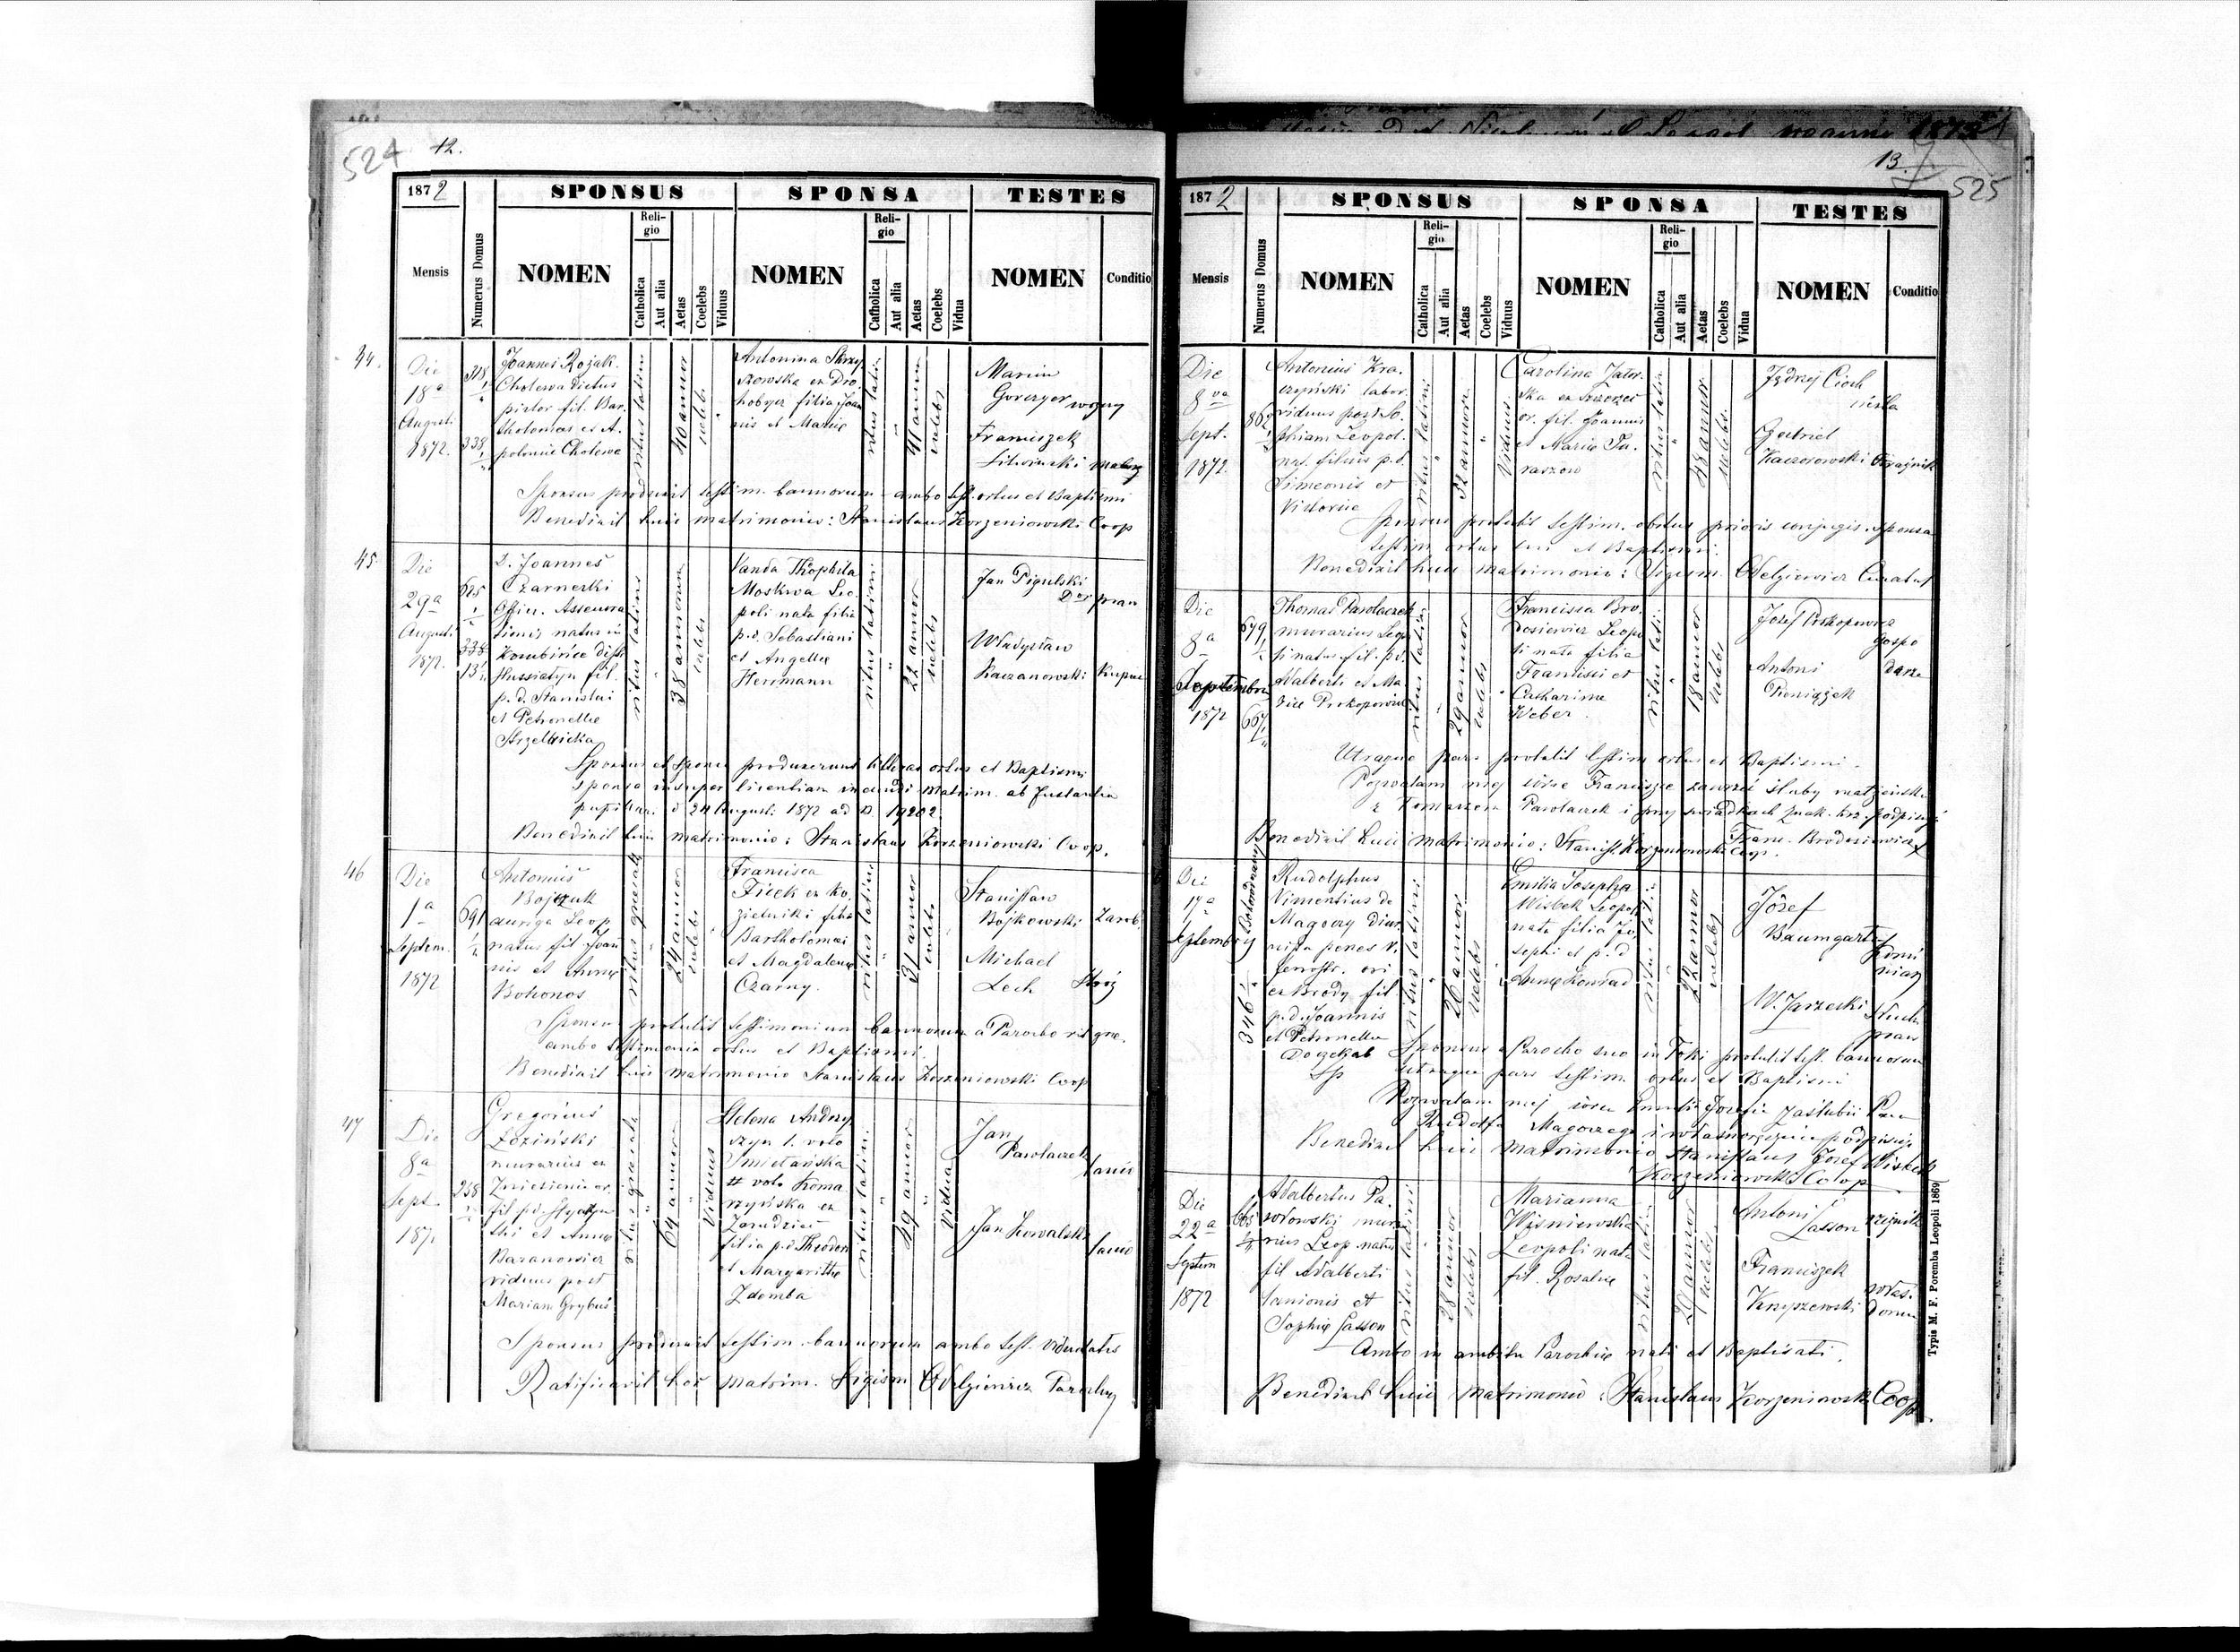 524 12.
1872 SPONSUS SPONSA TESTES
Mensis Numerus Domus NOMEN Religio Catholica Aut alia Aetas Coelebs Viduus NOMEN Religio Catholica Aut alia Aetas Coelebs Vidua NOMEN Conditio
44.
Die
18a
Augusti
1872.
338
Joannes Rozak
Cholewa dictus
pictor fil. Bar
tholomei et A
polonie Cholewa
ritus latini
40 annor
coelebs
Antonina Skrzy
szowska ex Dro
hobycz filia Joan
nis et Mariæ
ritus latin
41 annor
coelebs
Marcin
woźny
Franciszek
Litwinski
Sponsus produxit testim. bannorum ambo test. ortus et Baptismi
Benedixit huic matrimonio: Stanislaus Korzeniowski Coop
45
Die
29a
Augusti
1872.
625
338
13
D. Joannes
Czarnecki
Offici. Assecura
tionis natus in
Husiatyn fil.
p. d. Stanislai
et Petronellæ
Strzelbicka
ritus latini
38 annorum
coelebs
Vanda Theophila
Moskwa Leo
poli nata filia
p.d. Sebastiani
et Angellæ
Herrmann
ritus latini
22 annor
coelebs
Jan Pigulski
Dor praw
Władysław
Kaczanowski Kupiec
Sponsus et sponsa produxerunt litteras ortus et Baptismi
sponsa insuper licentiam ineundi matrim. ab Instantia
pupillar. d 24 Augusti 1872 ad N. 19202
Benedixit huic matrimonio: Stanislaus Korzeniowski Coop.
46
Die
1a
Septem.
1872
691
Antonius
Bojczuk
auriga Leop
natus fil. Joan
nis et Annæ
Bohonos
24 annor
coelebs
Francisca
Ficek ex Ko
zielniki filia
Bartholomei
et Magdalenæ
Czarny.
ritus latini
31 annor
coelebs
Stanisław
Bojkowski Zarob.
Michael
Lech Stróż
Sponsus protulit testimonium bannorum a Parocho rit. græ.
ambo testimonia ortus et Baptismi.
Benedixit huic matrimonio Stanislaus Korzeniowski Coop
47
Die
8a
Sept.
187
258
Gregorius
Łoziński
murarius ex
Zniesienie or.
fil p.d.
et Annæ
Baranowicz
viduus post
Mariam Grybus
64 annor
Viduus
Helena Andrzy
szyn 1. voto
Smietańska
II voto Koma
rzyńska ex
Zarudzie
filia p.d. Theodori
et Margarithæ
Zdomba
ritus latini
49 annor
Vidua
Jan
Pawlaczek
Jan Kowalski
Sponsus produxit testim. bannorum ambo test. viduitatis
Ratificavit hoc matrim. Sigism Odelgiewicz Parochus
13. 7 525
1872 SPONSUS SPONSA TESTES
Mensis Numerus Domus NOMEN Religio Catholica Aut alia Aetas Coelebs Viduus NOMEN Religio Catholica Aut alia Aetas Coelebs Vidua NOMEN Conditio
Die
8va
Sept.
1872
862
Antonius Kra
czyński labor
viduus post So
phiam Leopol.
nat. filius p.d.
Simeonis et
Victoriæ
ritus latini
52 annorum
Viduus
Carolina Zator
ska ex
or. fil. Joannis
et Mariæ Ta
raszow
48 annor
coelebs
Jędrzej Cioch
cieśla
Gabriel
Kaczorowski
Sponsus protulit testim. obitus prioris conjugis. sponsa
testim. ortus sui et Baptismi.
Benedixit huic matrimonio: Sigism. Odelgiewicz Curatus
Die
8a
Septembris
1872
679
667
Thomas Pawlaczek
murarius Leopo
li natus fil. p.d.
Adalberti et Ma
riæ Prokopowicz
ritus latini
29 annor
coelebs
Francisca Bro
dosiewicz Leopo
li nata filia
Francisci et
Catharinæ
Weber
18 annor
coelebs
Józef Prokopowicz
gospo
Antoni darz
Pieniążek
Utraque pars protulit testim ortus et Baptismi.
Pozwalam mej córce Franciszce zawrzeć śluby małżeńskie
z Tomaszem Pawlaczek i przy świadkach znak. krz. podpisuję
Franc. Brodosiewicz X
Benedixit huic matrimonio: Stanisl. Korzeniowski Coop.
Die
17a
Septembris
346
Rudolphus
Vincentius de
Magoczy Diur
nista penes
ex Brody fil.
p.d. Joannis
et Petronellæ
ritus latini
26 annor
coelebs
Emilia Josepha
Wisbek Leopoli
nata filia Jo
sephi et p.d
Annæ Konrad
22 annor
coelebs
Józef
Baumgarten
Komi
niarz
W. Jarzecki Słuch
praw
Sponsus a Parocho suo in Toki protulit test. bannorum
utraque pars testim. ortus et Baptismi
Pozwalam mej córce Emilii Józefie zaślubić Pana
Rudolfa Magoczego i własnoręcznie podpisuję
Józef Wisbek
Benedixit huic matrimonio Stanislaus
Korzeniowski Coop
Die
22a
Septem
1872
Adalbertus Pa
włowski mura
rius Leop. natus
fil Adalberti
lanionis et
Sophiæ Sasson
ritus latini
28 annor
coelebs
Marianna
Wiśniewska
Leopoli nata
fil. Rosaliæ
ritus latin
20 annor
coelebs
Antoni
Sasson rzeźnik
Franciszek
Knyszewski włas.
domu
Ambo in ambitu Parochiæ nati et Baptisati.
Benedixit huic matrimonio: Stanislaus Korzeniowski Coop
Typis M. F. Poremba Leopoli 1869